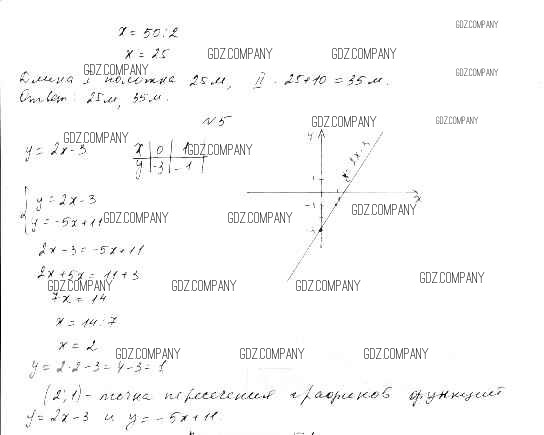 x = 50:2
x = 25
GDZ.COMPANY GDZ.COMPANY GDZ.COMPANY
GDZ.COMPANY GDZ.COMPANY
Длина I полотна 25м, II - 25+10 = 35м.
Ответ: 25м, 35м.
N5
GDZ.COMPANY GDZ.COMPANY GDZ.COMPANY
y = 2x-3
x 0 1
y -3 -1
GDZ.COMPANY
y
y = 2x-3
x
1
-1
-3
y = 2x-3
y = -5x+11
GDZ.COMPANY GDZ.COMPANY GDZ.COMPANY
2x-3 = -5x+11
2x+5x = 11+3
GDZ.COMPANY GDZ.COMPANY GDZ.COMPANY GDZ.COMPANY
7x = 14
x = 14:7
x = 2
GDZ.COMPANY GDZ.COMPANY GDZ.COMPANY
y = 2·2-3 = 4-3 = 1
(2;1) - точка пересечения графиков функций
y = 2x-3 и y = -5x+11.